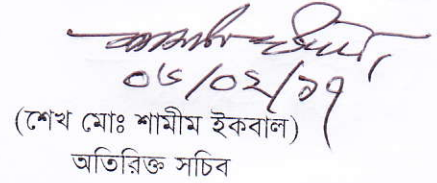 ০৬/০২/১৭
(শেখ মোঃ শামীম ইকবাল)
অতিরিক্ত সচিব